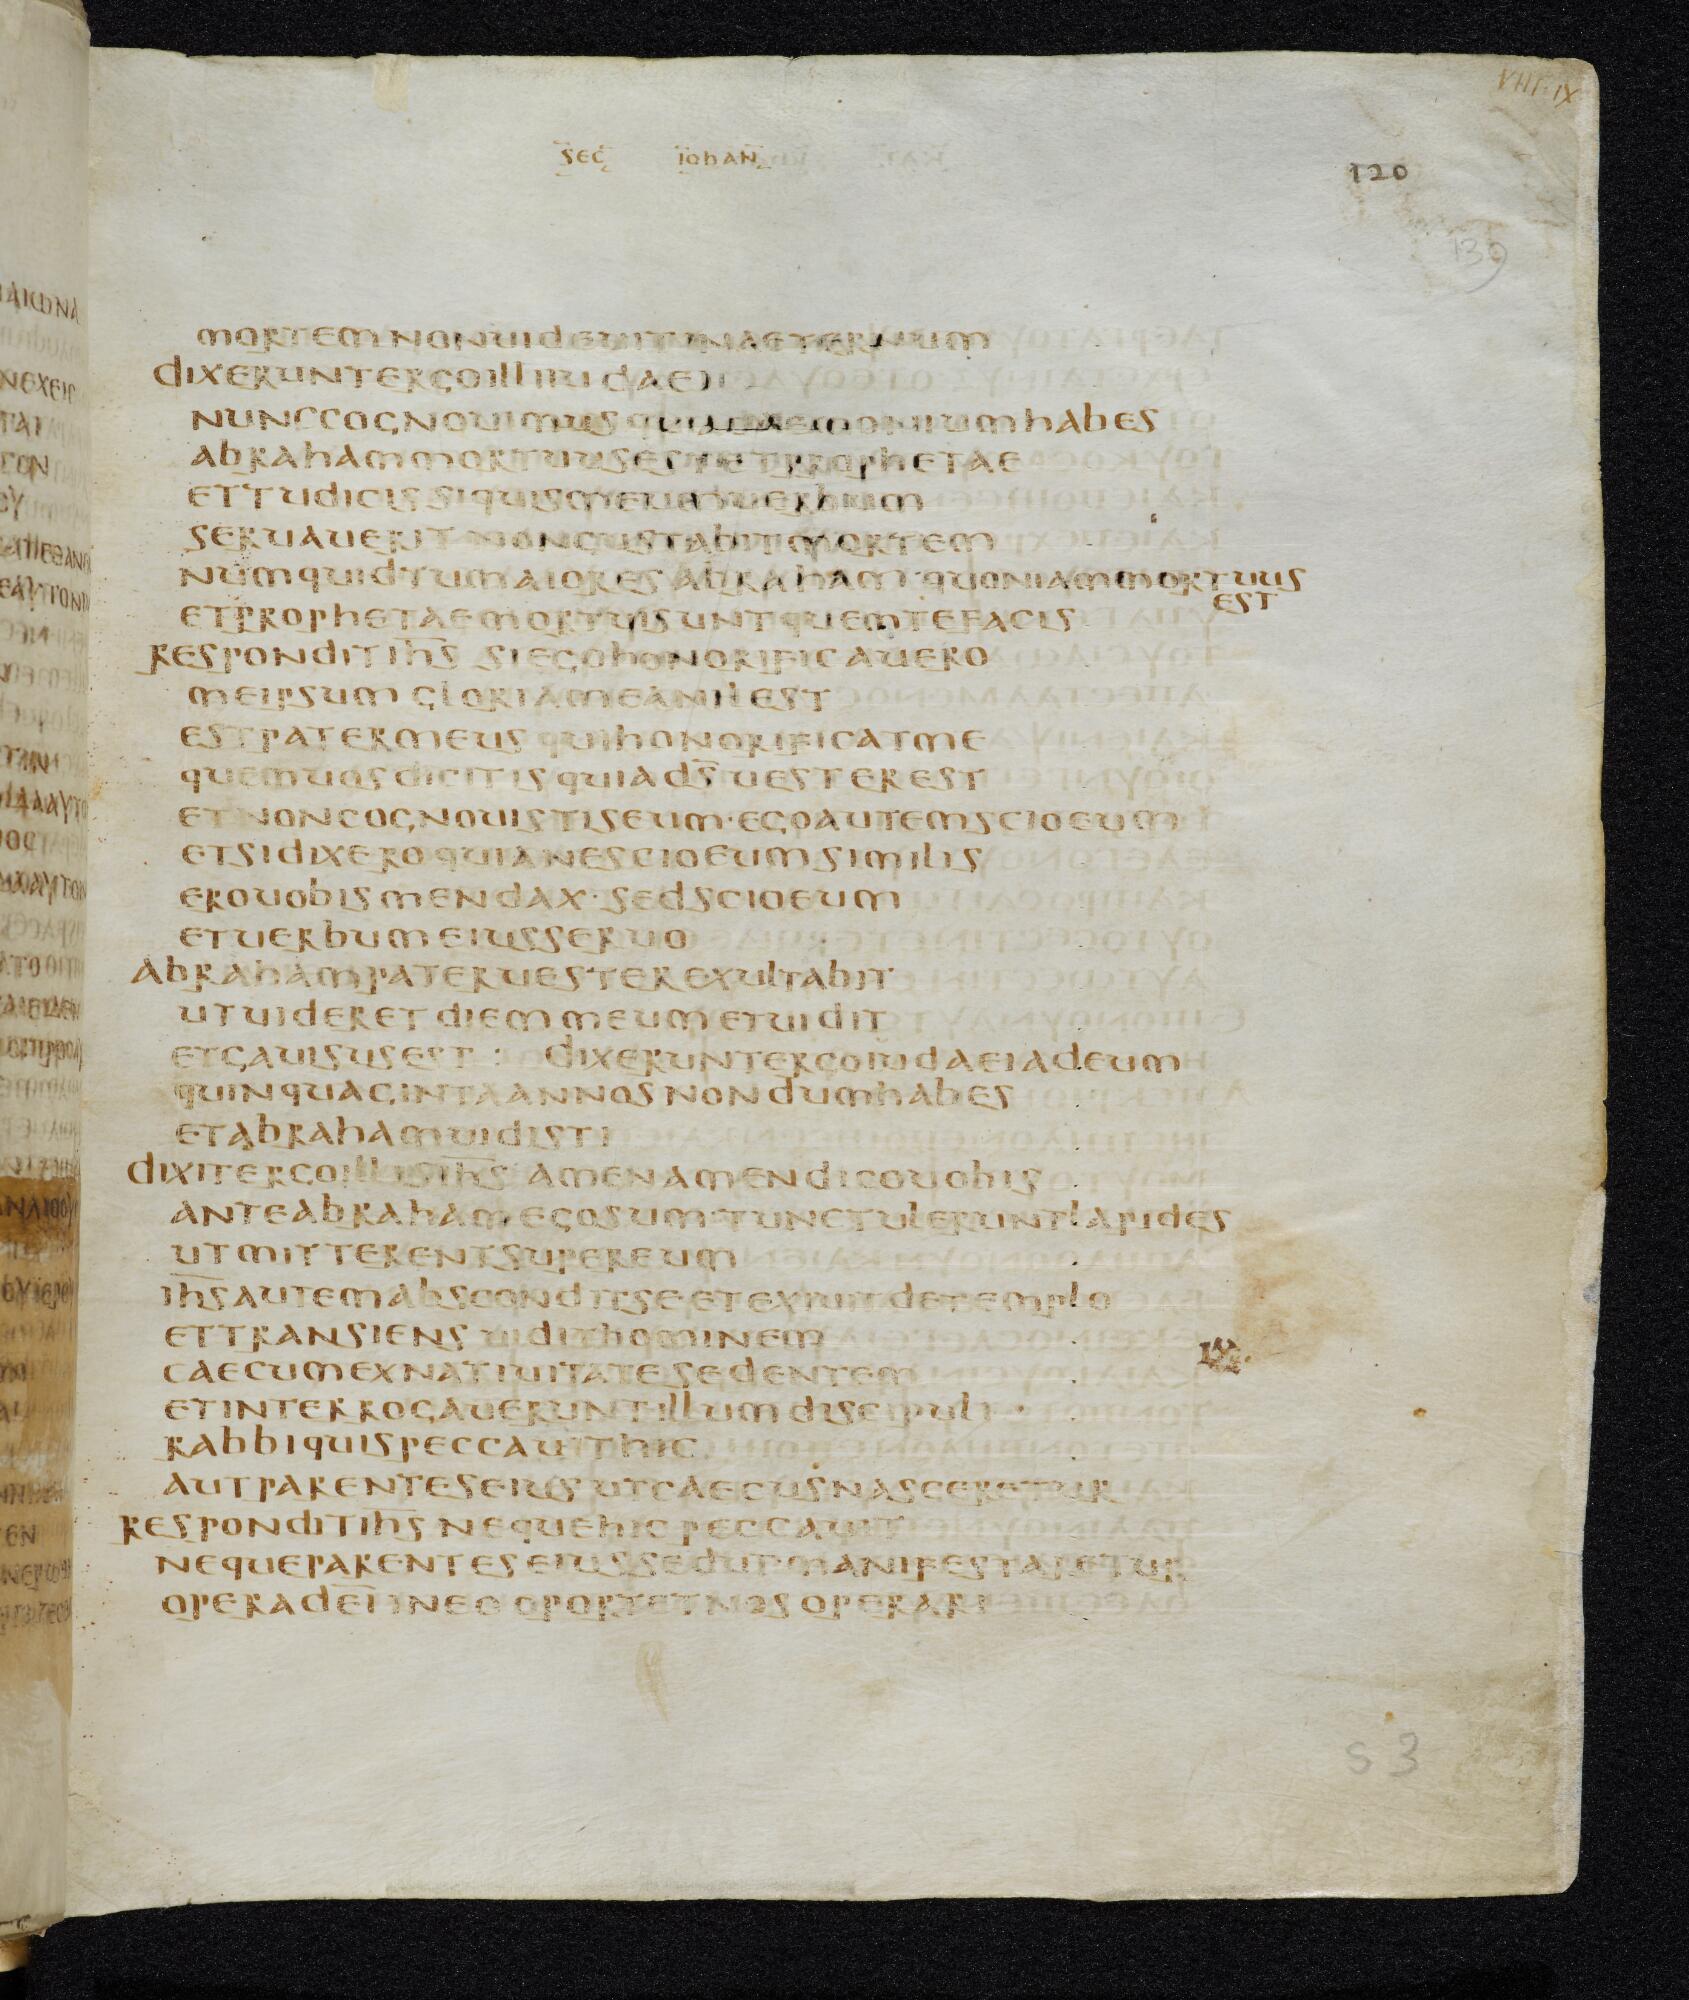 VIII·IX
sec iohan
120
139
mortemnonuidevitinaeternum
dixeruntergoilliiudaei
nunccognouimusquiademoniumhabes
abrahammortuusestetprophetae
ettudicissiquismeumuerbum
seruaueritnongustabitmortem
numquidtumaioresabraham·quoniammortuus
est
etprophetaemortuisuntquemtefacis
respondit ihs siegohonorificauero
meipsum gloriameanilest
estpatermeus quihonorificatme
quemuosdicitisquiads uesterest
etnoncognouistiseum·egoautemscioeum
etsidixeroquianescioeumsimilis
erouobismendax·sedscioeum
etuerbumeiusseruo
abrahampateruesterexultabit
utuideretdiemmeumetuidit
etgauisusest : dixeruntergoiudaeiadeum
quinquagintaannosnondumhabes
etabrahamuidisti
dixitergoillisihs amenamendicouobis
anteabrahamegosum·tunctuleruntlapides
utmitterentsupereum
ihsautemabsconditseetexiuitdetemplo
ettransiens uidithominem
IX·
caecumexnatiuitatesedentem
etinterrogaueruntillumdiscipuli·
rabbiquispeccauithic
autparenteseius utcaecusnasceretur
respondit ihs nequehicpeccauit
nequeparenteseiussedut·manifestaretur
operadei ineo oportetnosoperari
s 3